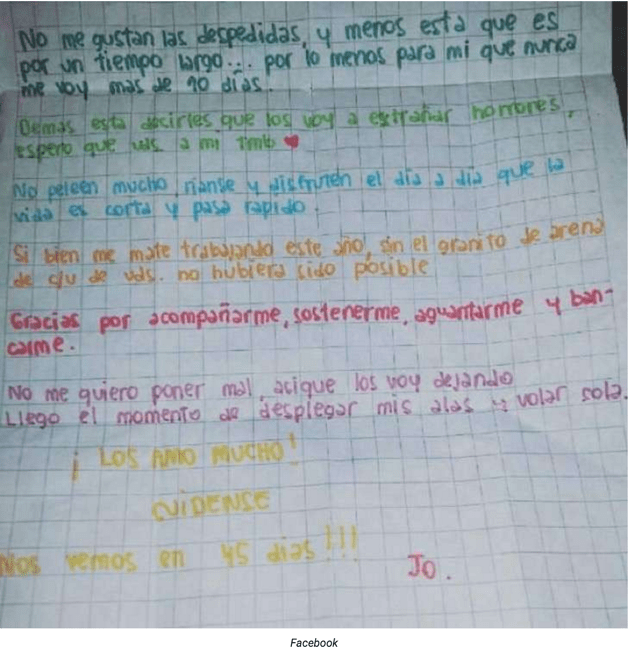 No me gustan las despedidas, y menos esta que es
por un tiempo largo... por lo menos para mi que nunca
me voy mas de 10 dias.
Demas esta decirles que los voy a extrañar horrores,
espero que uds. a mi tmb ♥
No peleen mucho, rianse y disfruten el dia a dia que la
vida es corta y pasa rapido.
Si bien me mate trabajando este año, sin el granito de arena
de c/u de uds. no hubiera sido posible
Gracias por acompañarme, sostenerme, aguantarme y ban-
carme.
No me quiero poner mal, asique los voy dejando
Llego el momento de desplegar mis alas y volar sola.
¡ LOS AMO MUCHO!
CUIDENSE
Nos vemos en 45 dias!!!
Jo.
Facebook